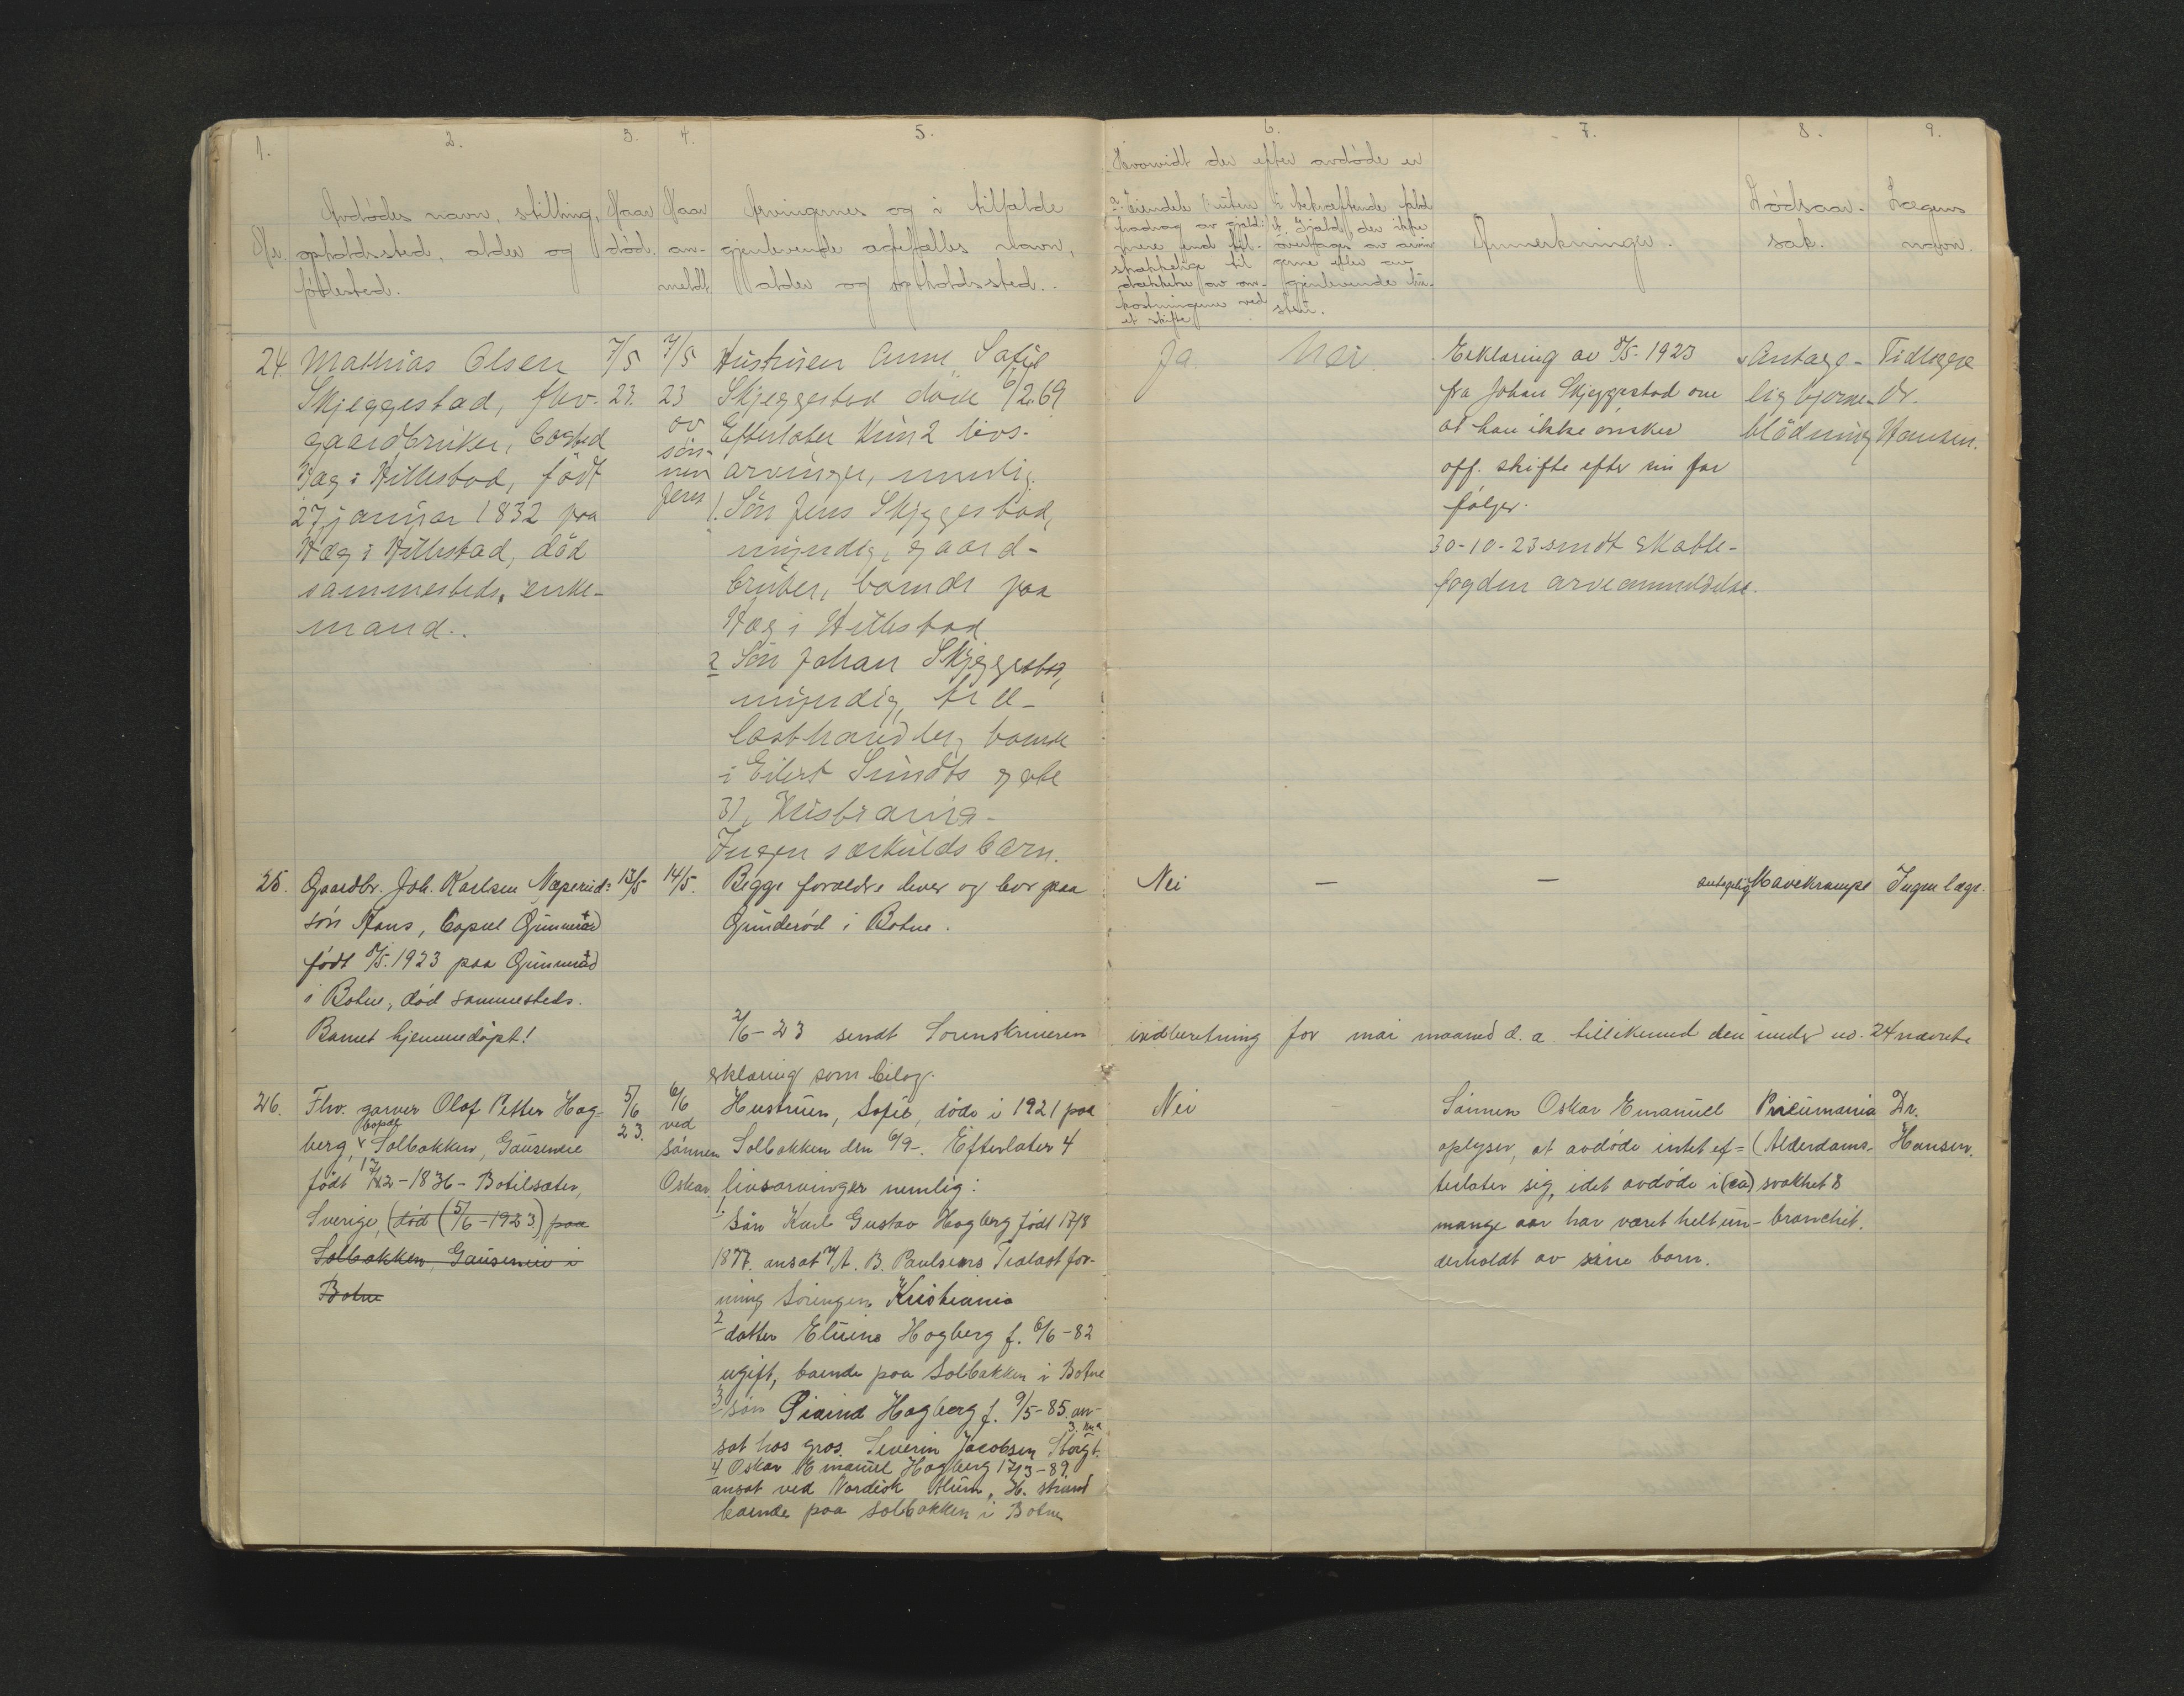 1. 2. 3. 4. 5. 6. 7. 8. 9.
Hvorvidt der efter avdöde er
No. Avdödes navn, stilling, opholdssted, alder og födested.
Naar död.
Naar an-
meldt
Arvingernes og i tilfælde
gjenlevende ægtefælles navn,
alder og opholdssted.
a. Eiendele (uten
fradrag av gjæld)
mere end til-
strækkelige til
dækkelse av om-
kostningerne ved
et skifte
i bekræftende fald
Gjæld, der ikke
overtages av arvin
gerne eller av
gjenlevende
Anmerkninger.
Dödsaar-
sak.
Lægens
navn.
24. Mathias Olsen
Skjeggestad, fhv.
gaardbruker, bosted
Hæg i Hillestad, födt
27 januar 1832 paa
Hæg i Hillestad, död
sammesteds, enke-
mand.
7/5
23.
7/5
23
av
sön-
nen
Jens
Hustruen Anne Sofie
Skjeggestad döde 6/2.69
Efterlater kun 2 livs-
arvinger, nemlig.
1. Sön Jens Skjeggestad,
myndig, gaard-
bruker, boende paa
Hæg i Hillestad
2 Sön Johan Skjeggestad,
myndig, træ-
lasthandler, boende
i Eilert Sundts gate
31, Kristiania-
Ingen særkuldsbarn.
Ja. Nei.
Erklæring av 8/5-1923
fra Johan Skjeggestad om
at han ikke önsker
off. skifte efter sin far
fölger.
30-10-23 sendt skatte-
fogden arveanmeldelse.
Antage-
lig hjerne-
blödning
Fidlægge
Dr.
Hansen.
25. Gaardbr. Joh. Karlsen Næperud:
sön Hans, bopæl Gunneröd
födt 8/5.1923 paa Gunneröd
i Botne, död sammesteds.
Barnet hjemmedöpt!
13/5 14/5.
Begge forældre lever og bor paa
Gunderöd i Botne.
Nei — — antagelig Mavekrampe Ingen læge.
2/6-23 sendt Sorenskriveren indberetning for mai maaned d.a tillikemed den under no. 24 nævnte
erklæring som bilag.
26. Fhv. garver Olaf Petter Hag-
berg, bopæl Solbakken, Gausenveie
födt 17/12-1836- Botilsæter,
Sverige, (död (5/6-1923) paa
Solbakken, Gausenvei i
Botne
5/6
23.
6/6
ved
sönnen
Oskar
Hustruen, Sofie, döde i 1921 paa
Solbakken den 6/9-. Efterlater 4
livsarvinger nemlig:
1 Sön Karl Gustav Hagberg födt 17/8
1877. ansat v/ A. B. Paulsens Trælastfor-
ning Sörengen Kristiania
2 datter Eluina Hagberg f. 6/6-82
ugift, boende paa Solbakken i Botne
3 sön Hagberg f. 9/5-85. an-
sat hos gros. Severin Jacobsen Storgt. 3. Kra
4 Oskar Emanuel Hagberg 17/3-89.
ansat ved Nordisk Alum, H. strand
boende paa Solbakken i Botne
Nei -
Sönnen Oskar Emanuel
oplyser, at avdöde intet ef=
terlater sig, idet avdöde i (ca) 8
mange aar har været helt un-
derholdt av sine barn.
Pneumania
(Alderdoms-
svakhet
bronchit.
Dr.
Hansen.